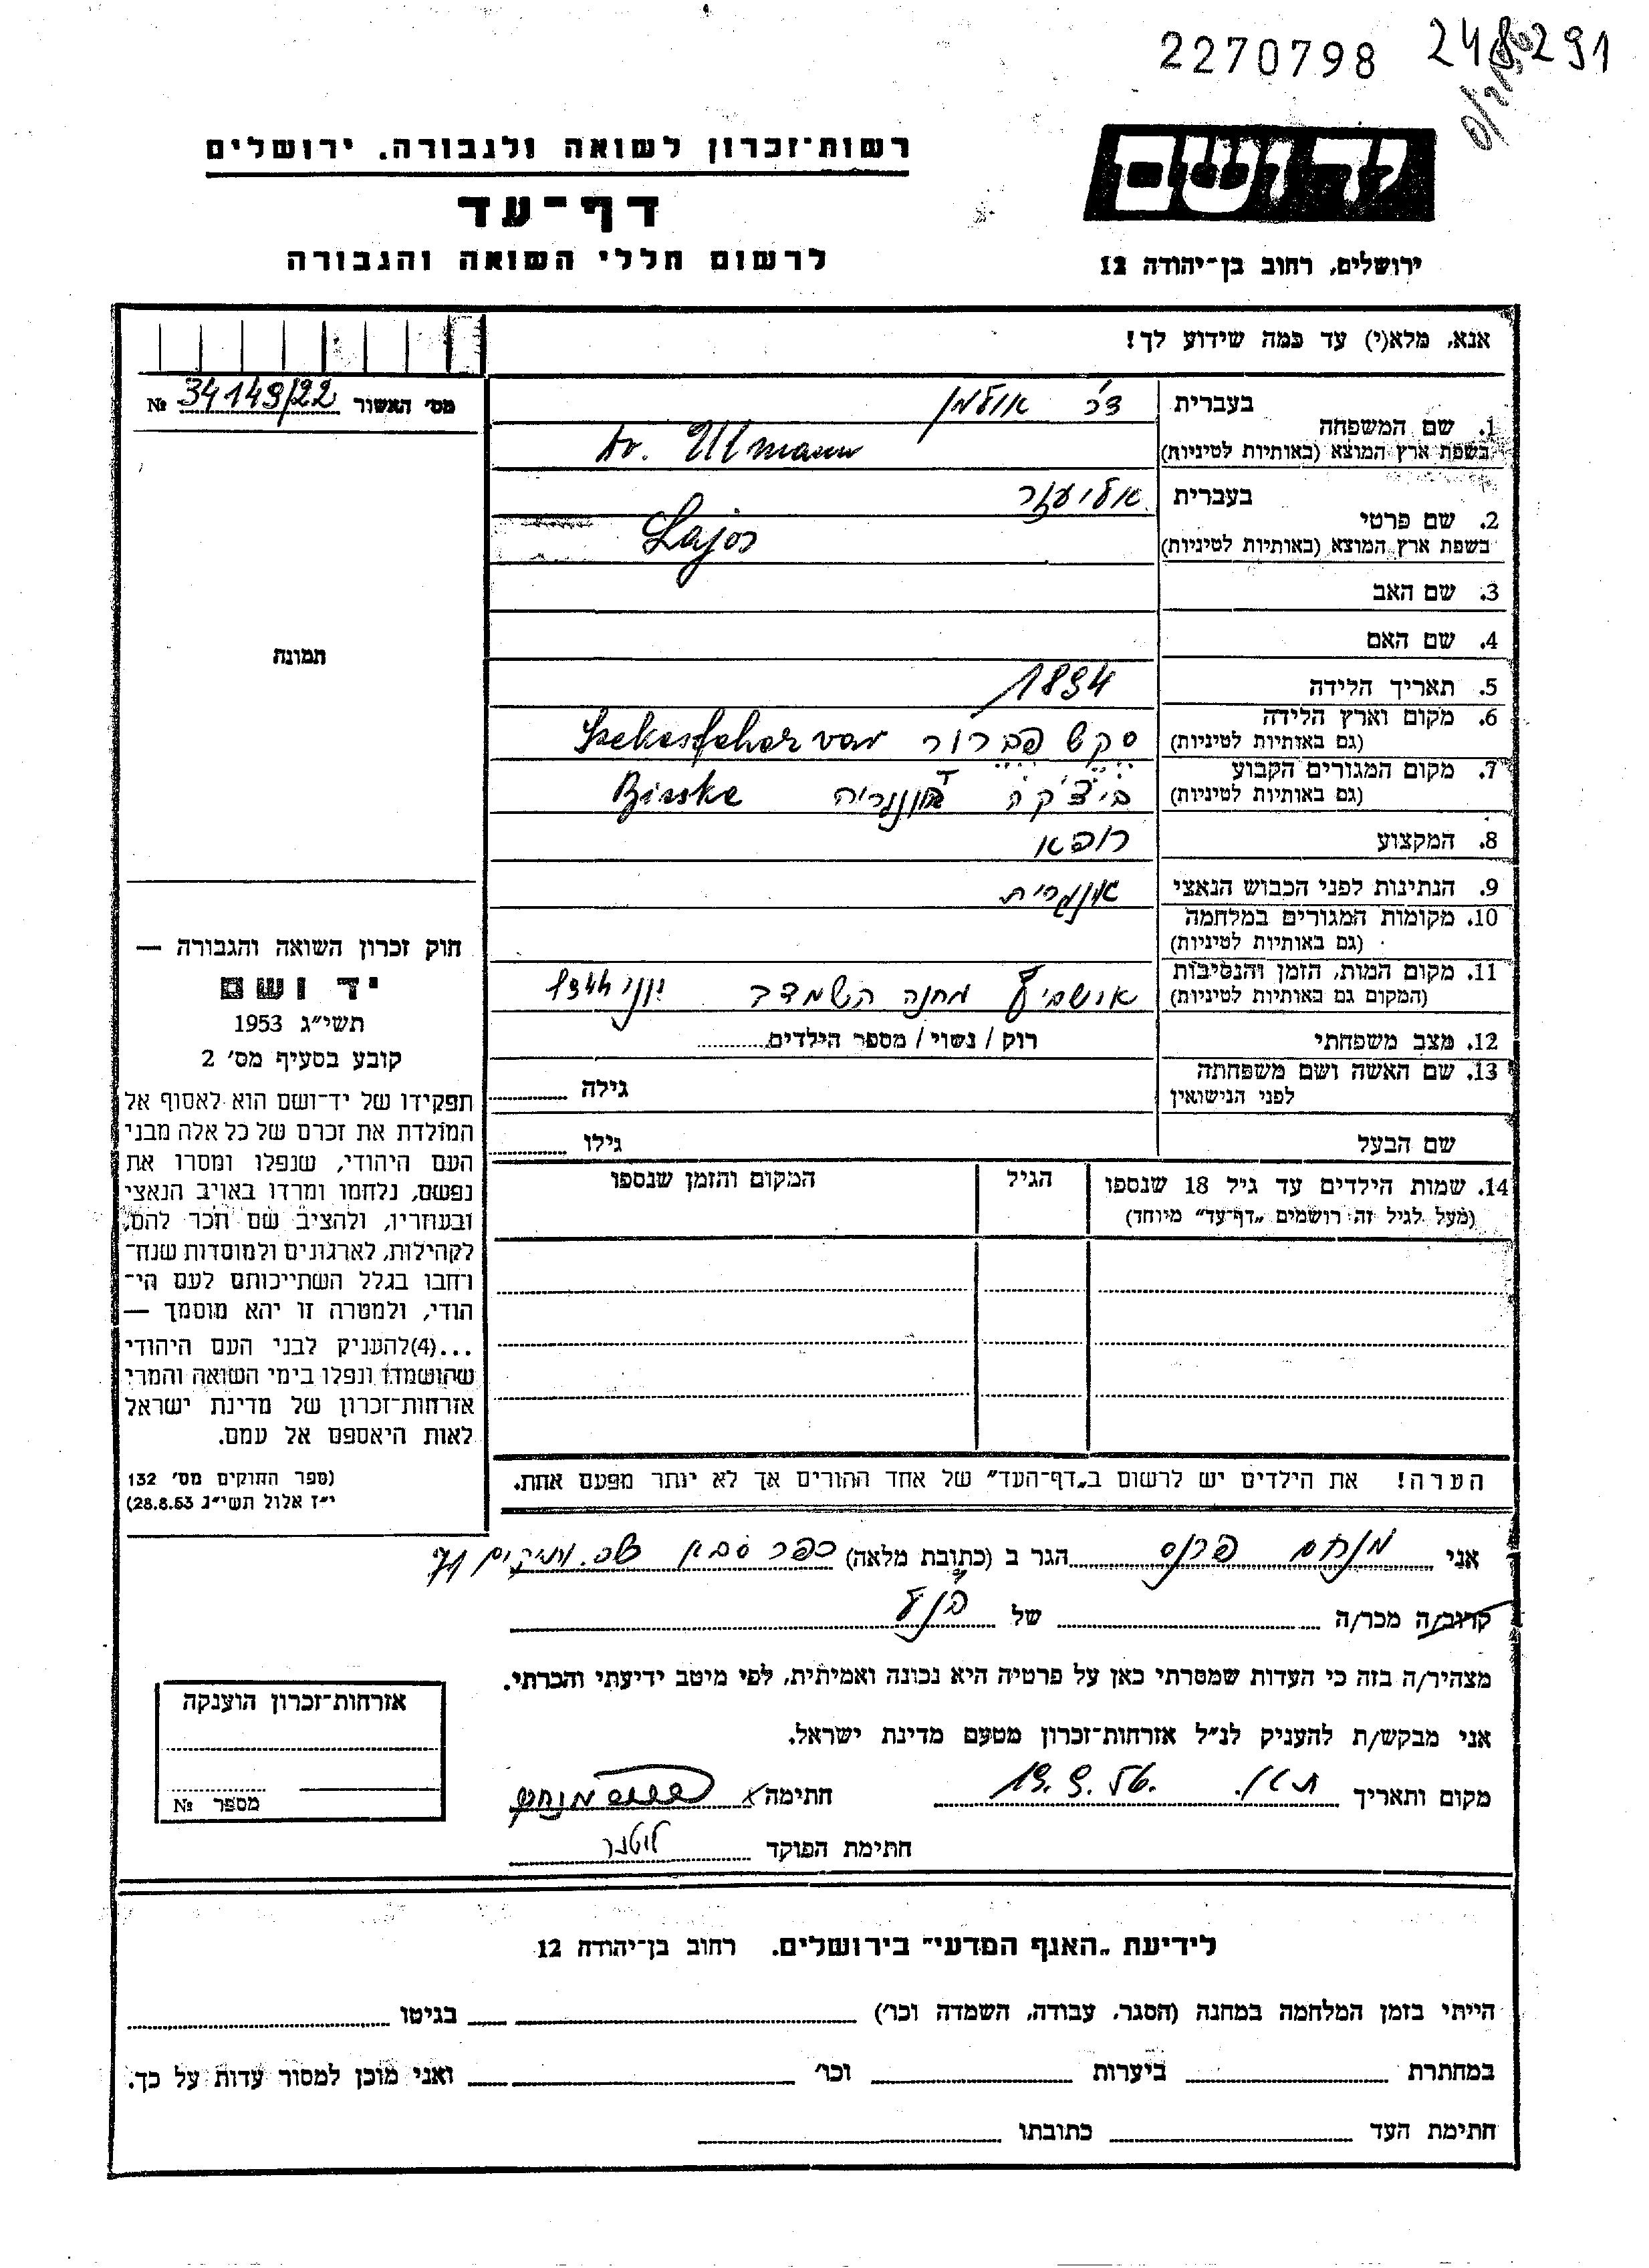 2270798 248291
יד ושם
רשות־זכרון לשואה ולגבורה. ירושלים
דף־עד
לרשום חללי השואה והגבורה
ירושלים, רחוב בן־יהודה 12
אנא, מלא(י) עד כמה שידוע לך!
מס׳ האשור 34149/22 №
1. שם המשפחה
בעברית ד״ר אולמן
בשפת ארץ המוצא (באותיות לטיניות) Dr. Ullmann
2. שם פרטי
בעברית אליעזר
בשפת ארץ המוצא (באותיות לטיניות) Lajos
3. שם האב
4. שם האם
5. תאריך הלידה 1894
6. מקום וארץ הלידה
(גם באותיות לטיניות) Szekesfehervar
7. מקום המגורים הקבוע
(גם באותיות לטיניות) ביצ׳קה הונגריה Bicske
8. המקצוע רופא
9. הנתינות לפני הכבוש הנאצי אונגרית
10. מקומות המגורים במלחמה
(גם באותיות לטיניות)
11. מקום המות, הזמן והנסיבות
(המקום גם באותיות לטיניות) אושביץ מחנה השמדה יוני 1944
12. מצב משפחתי רוק / נשוי / מספר הילדים
13. שם האשה ושם משפחתה
לפני הנישואין גילה
שם הבעל גילו
14. שמות הילדים עד גיל 18 שנספו הגיל המקום והזמן שנספו
(מעל לגיל זה רושמים „דף־עד״ מיוחד)
הערה! את הילדים יש לרשום ב„דף־העד״ של אחד ההורים אך לא יותר מפעם אחת.
תמונה
חוק זכרון השואה והגבורה —
יד ושם
תשי״ג 1953
קובע בסעיף מס׳ 2
תפקידו של יד־ושם הוא לאסוף אל
המולדת את זכרם של כל אלה מבני
העם היהודי, שנפלו ומסרו את
נפשם, נלחמו ומרדו באויב הנאצי
ובעוזריו, ולהציב שם וזכר להם,
לקהילות, לארגונים ולמוסדות שנח־
רחבו בגלל השתייכותם לעם הי־
הודי, ולמטרה זו יהא מוסמך —
...(4)להעניק לבני העם היהודי
שהושמדו ונפלו בימי השואה והמרי
אזרחות־זכרון של מדינת ישראל
לאות היאספם אל עמם.
(ספר החוקים מס׳ 132
י״ז אלול תשי״ג 28.8.53)
אני מנחם פרנס הגר ב (כתובת מלאה) כפר סבא שכ. ותיקים
קרוב/ה מכר/ה של
מצהיר/ה בזה כי העדות שמסרתי כאן על פרטיה היא נכונה ואמיתית, לפי מיטב ידיעתי והכרתי.
אני מבקש/ת להעניק לנ״ל אזרחות־זכרון מטעם מדינת ישראל.
מקום ותאריך 19.9.56 חתימה
חתימת הפוקד
אזרחות־זכרון הוענקה
מספר №
לידיעת „האגף המדעי״ בירושלים. רחוב בן־יהודה 12
הייתי בזמן המלחמה במחנה (הסגר, עבודה, השמדה וכו׳) בגיטו
במחתרת ביערות וכו׳ ואני מוכן למסור עדות על כך.
חתימת העד כתובתו